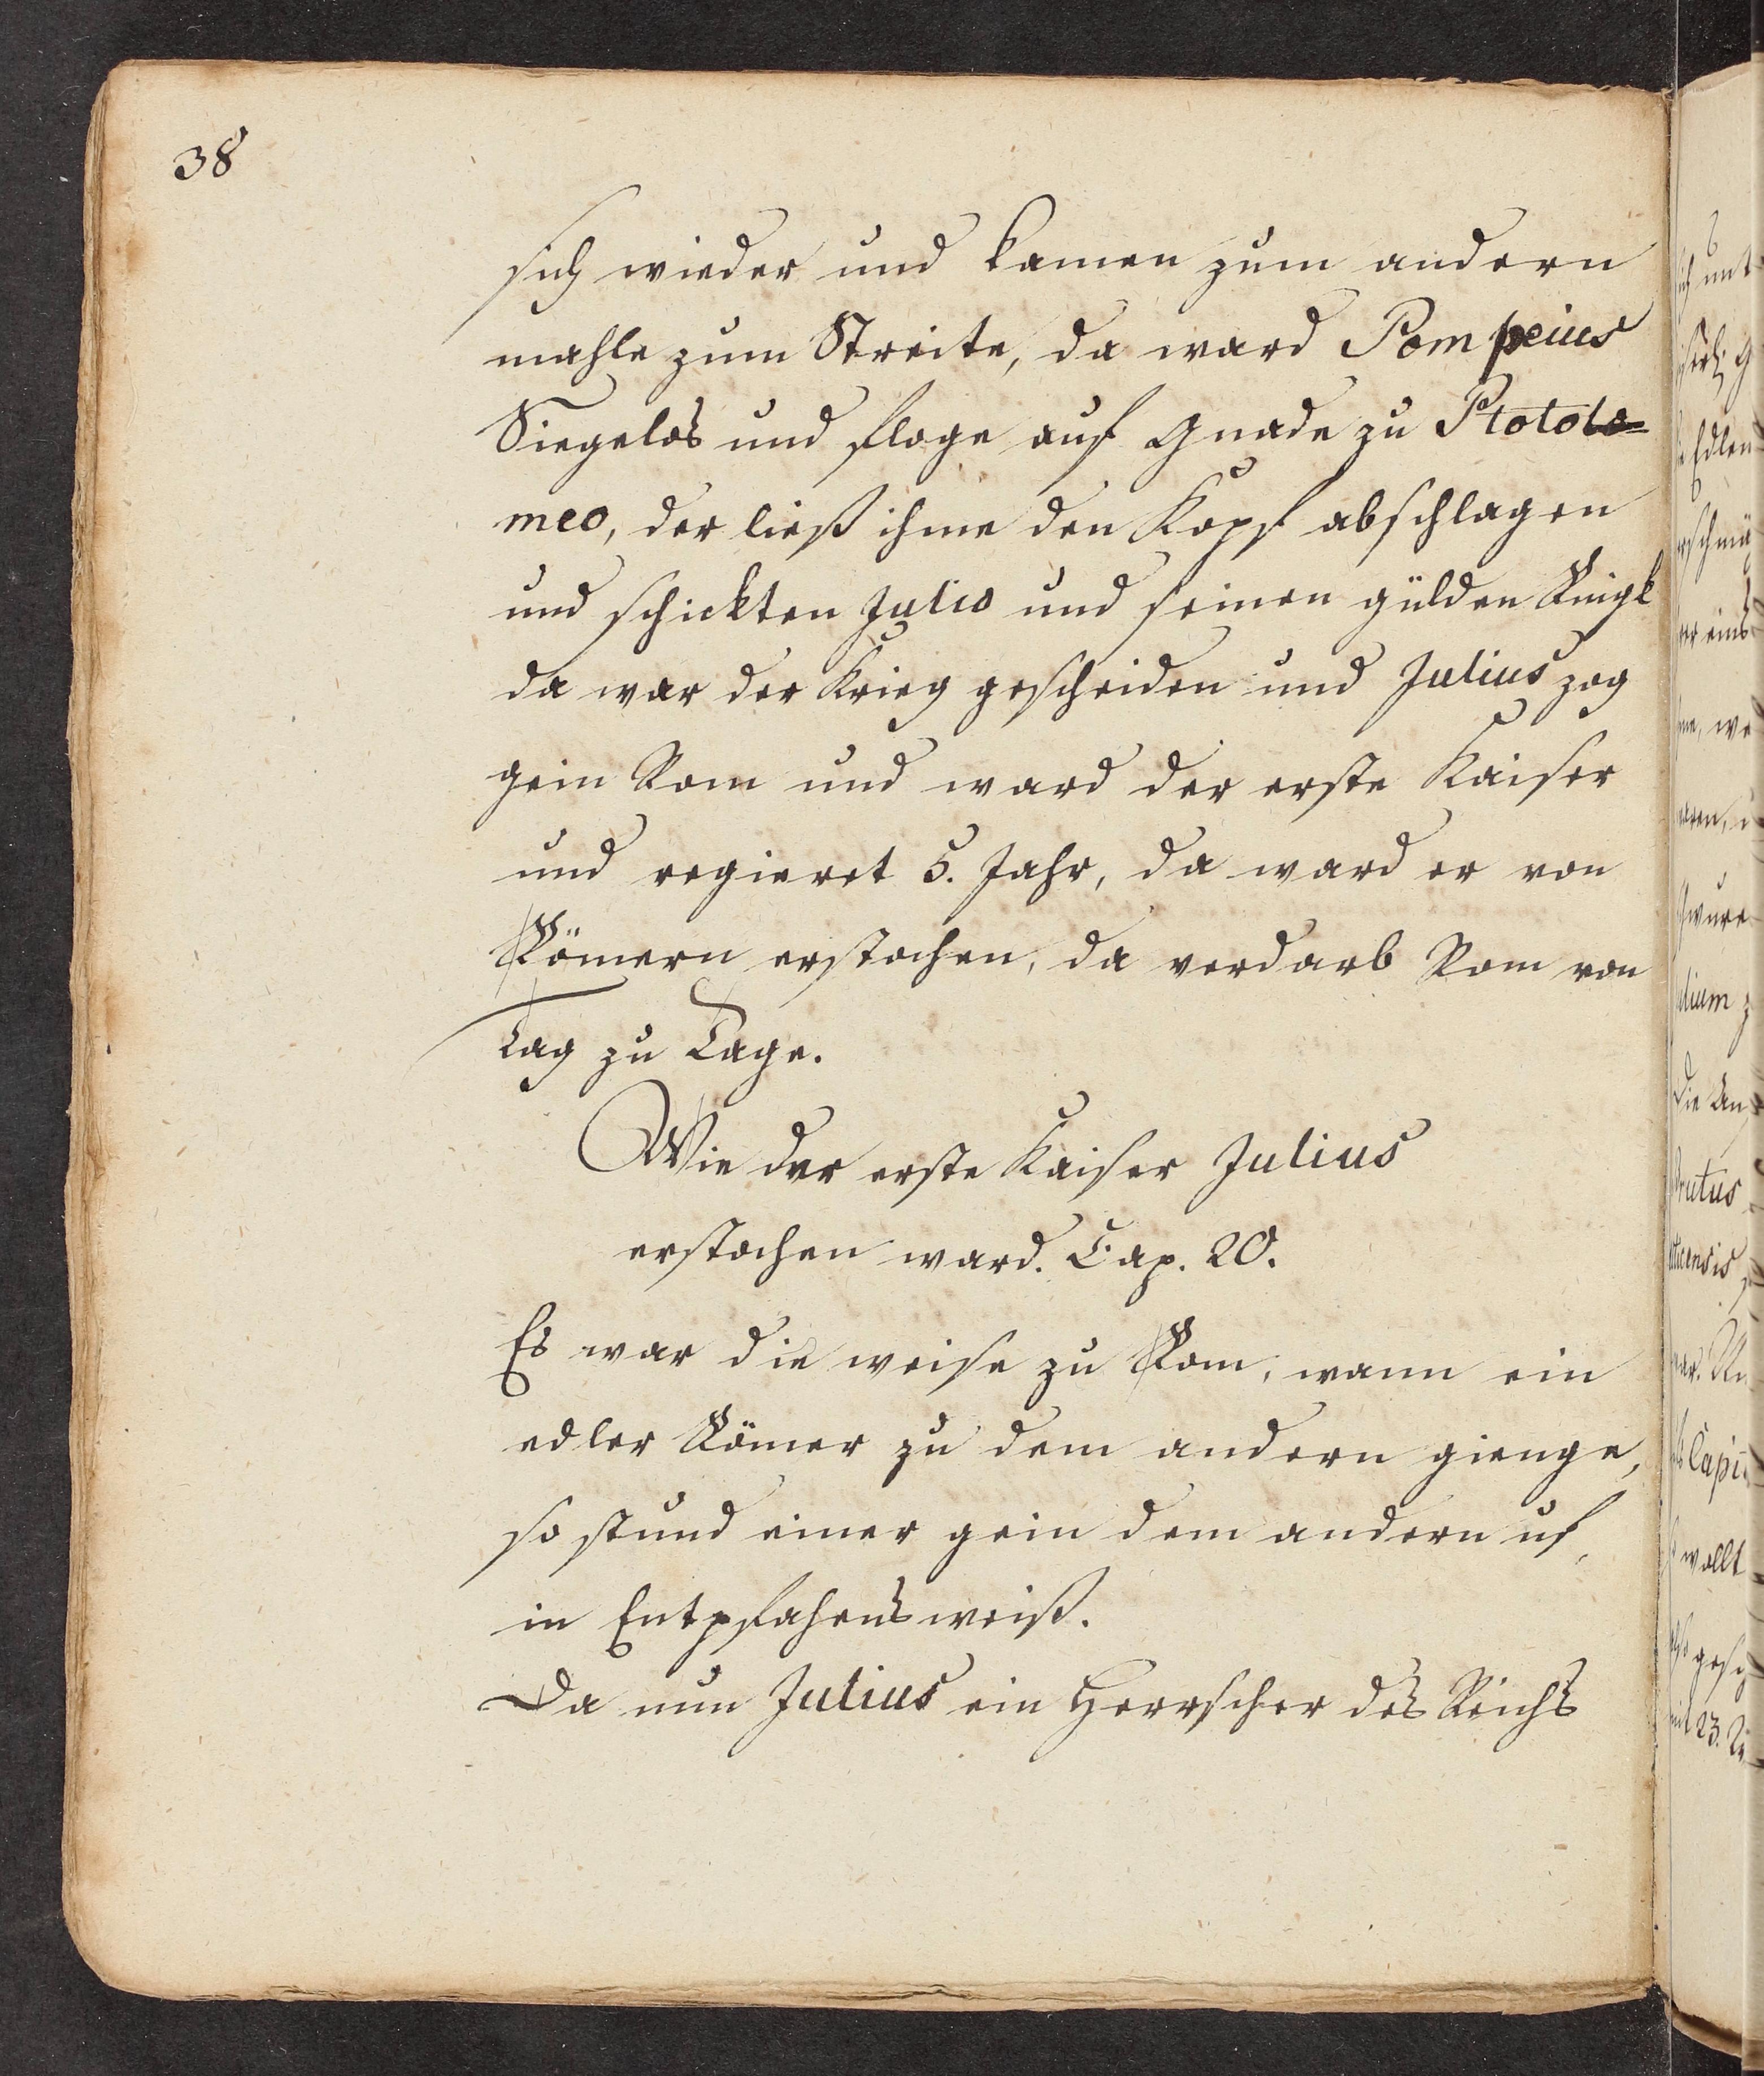 38
sich wieder und kamen zum andern
mahle zum Streite, da ward Pompeius
Siegelos und floge auf Gnade zu Ptotolo=
meo, der ließ ihme den Kopf abschlagen
und schickten Julio und seinen gülden Ringk
da war der Krieg gescheiden und Julius zog
gein Rom und ward der erste Kaiser
und regieret 5. Jahr, da ward er von
Römern erstochen, da verdarb Rom von
Tag zu Tage.
Wie der erste Kaiser Julius
erstochen ward. Cap. 20.
Es war die weise zu Rom, wann ein
edler Römer zu dem andern gienge,
so stund einer gein dem andern uf,
in Entpfahens weiß.
Da nun Julius ein Herrscher des Reichs